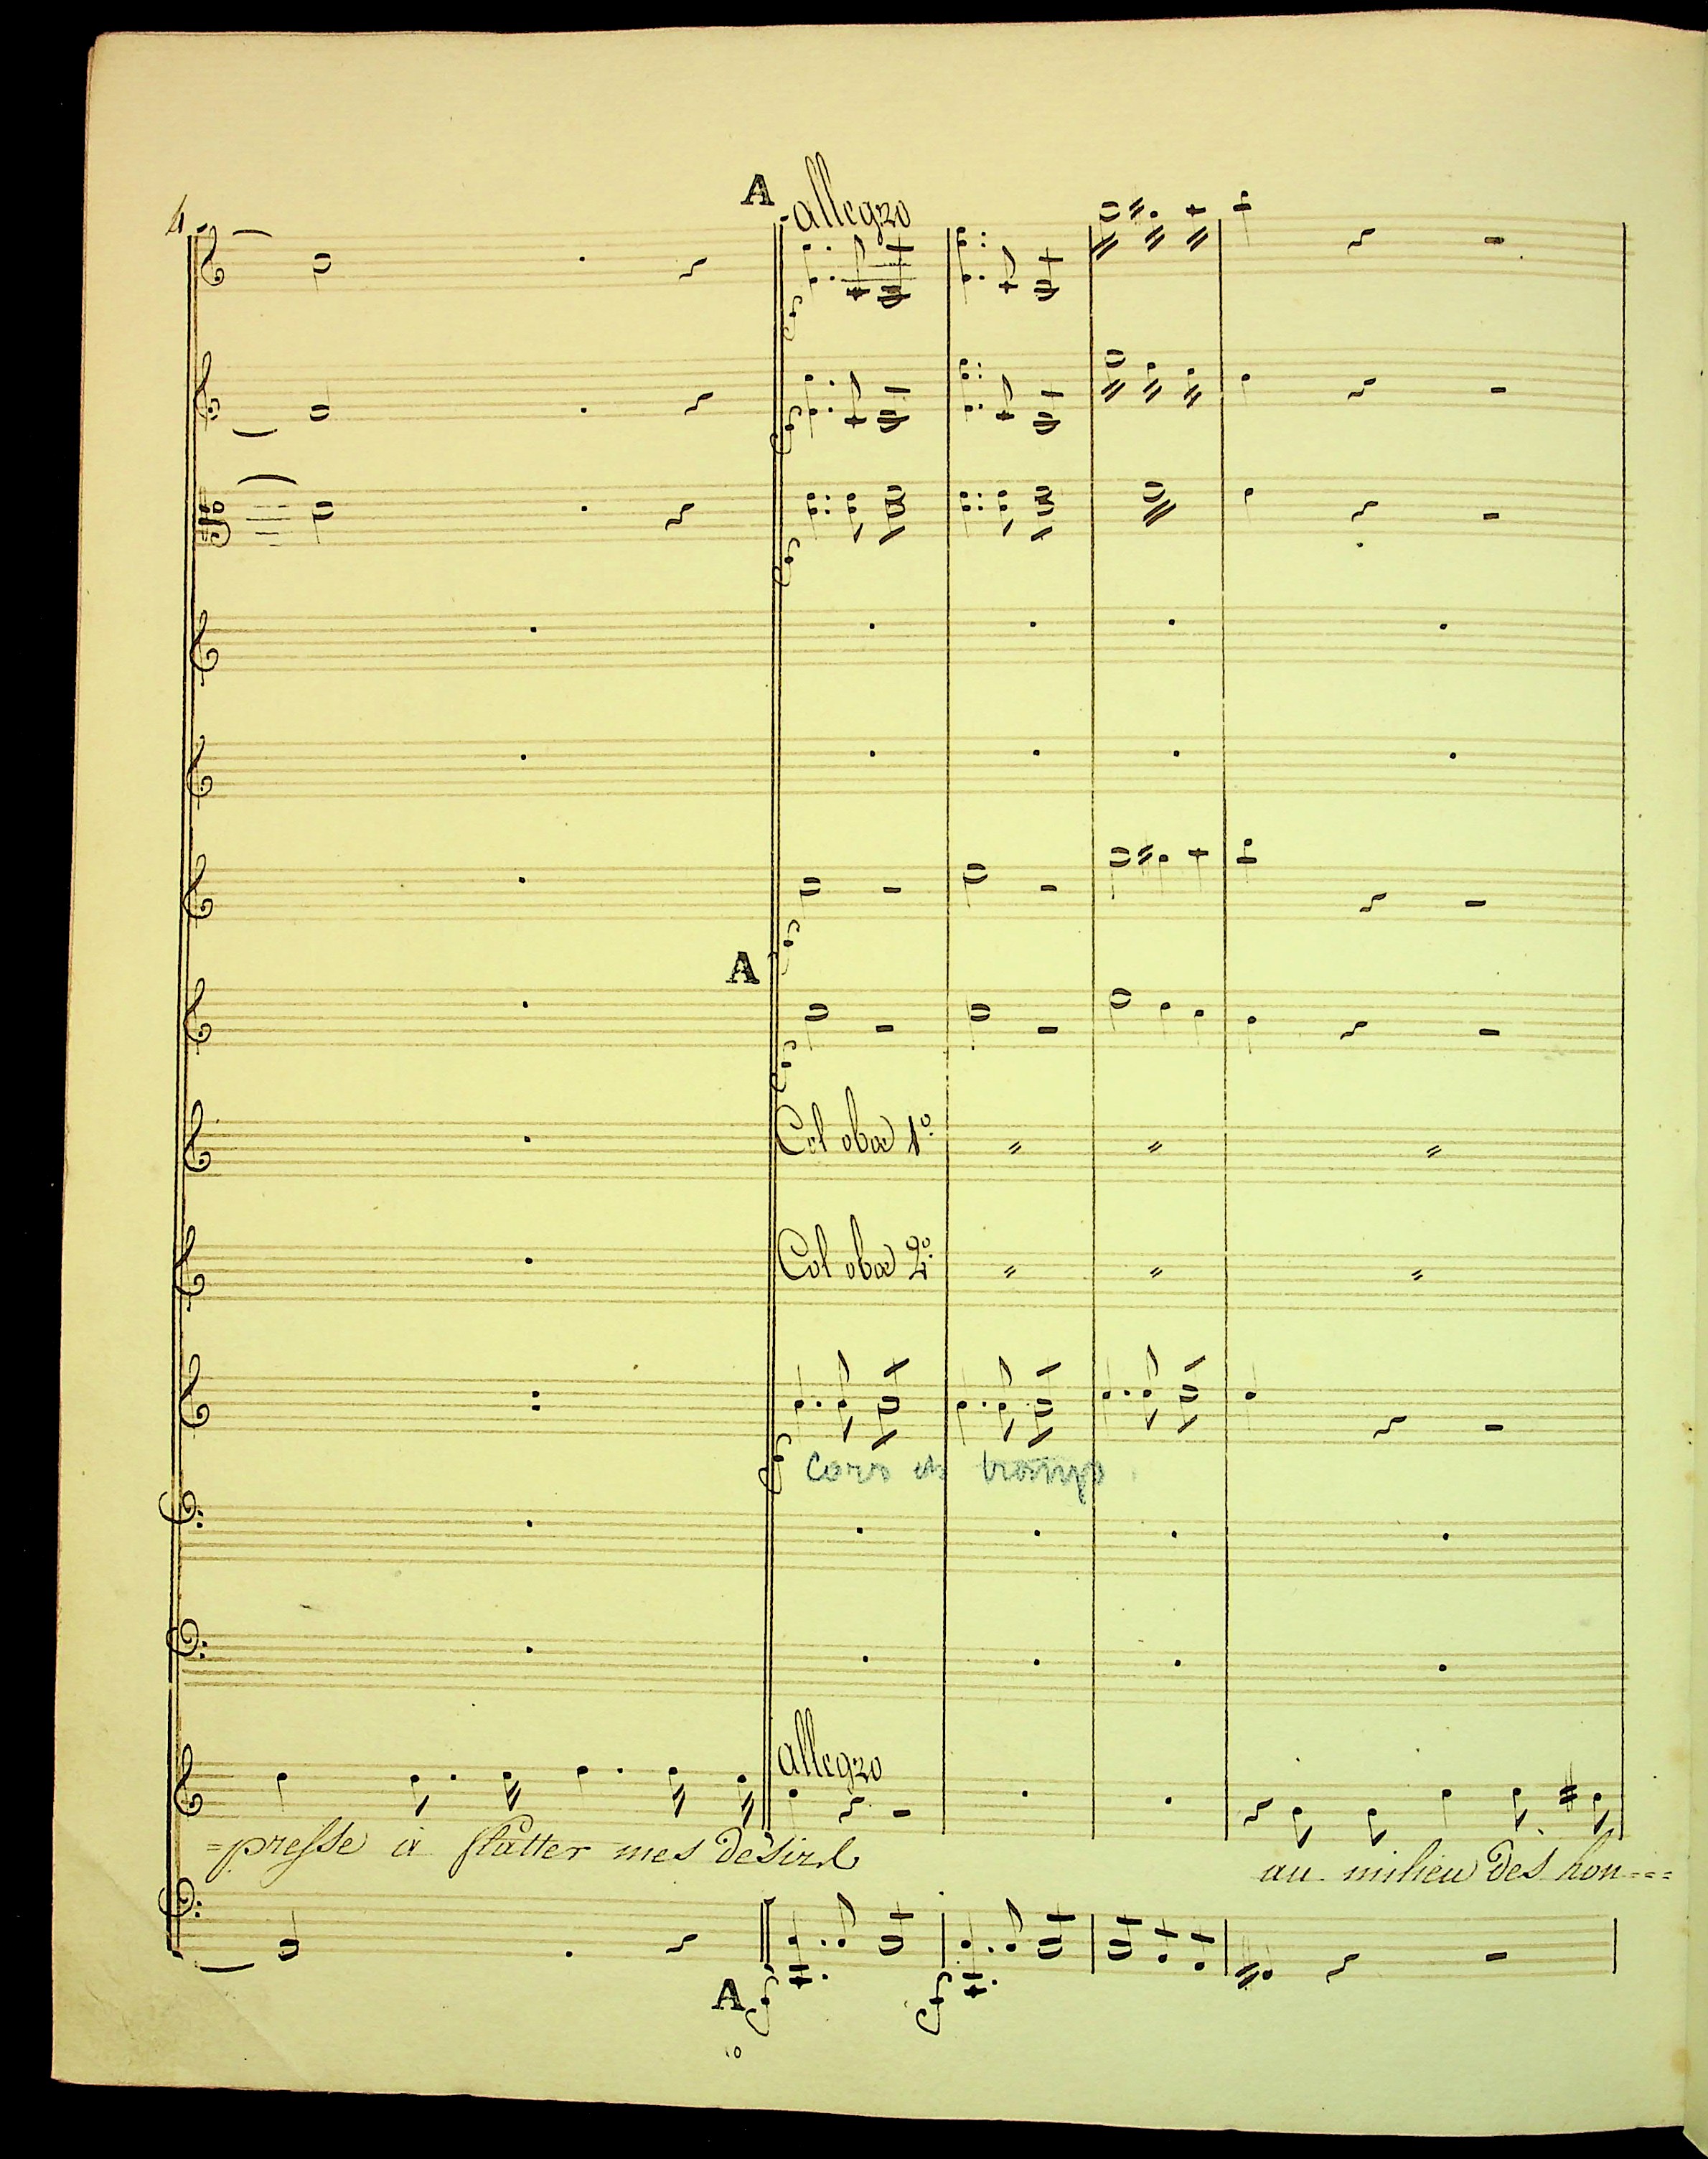 4
A allegro
A
Col oboe 1º.
Col oboe 2º.
Cors et tromp.
allegro
=presse à flatter mes desirs
au milieu des hon---
A